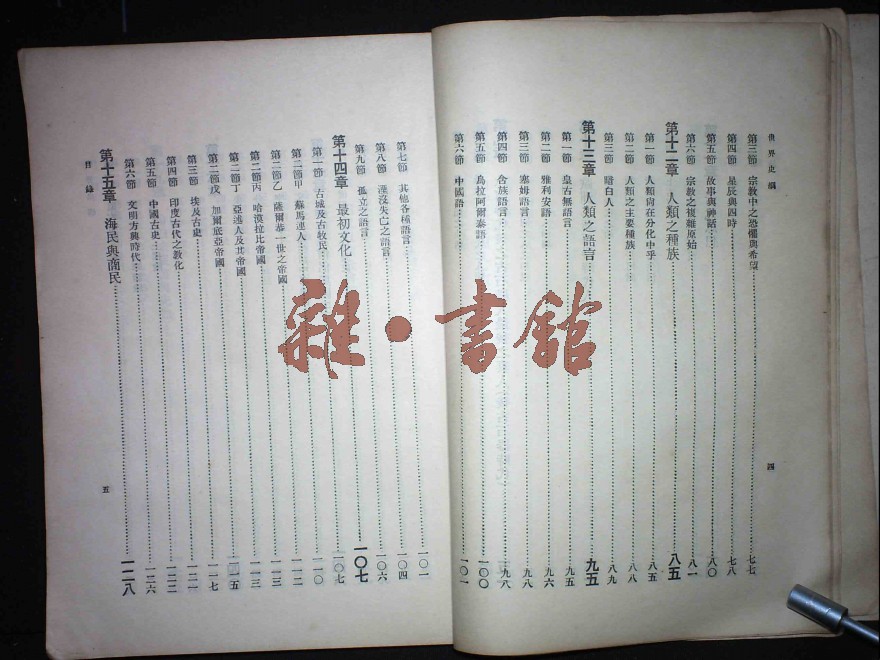 世界史綱
第三節 宗教中之恐懼與希望 七七
第四節 星辰與四時 七八
第五節 故事與神話 八〇
第六節 宗教之複雜原始 八一
第十二章 人類之種族 八五
第一節 人類尙在分化中乎 八五
第二節 人類之主要種族 八八
第三節 黯白人 八九
第十三章 人類之語言 九五
第一節 皇古無語言 九五
第二節 雅利安語 九六
第三節 塞姆語言 九八
第四節 含族語言 九八
第五節 烏拉阿爾泰語 一〇〇
第六節 中國語 一〇一
四
第七節 其他各種語言 一〇一
第八節 湮沒失亡之語言 一〇四
第九節 孤立之語言 一〇六
第十四章 最初文化 一〇七
第一節 古城及古牧民 一〇七
第二節甲 蘇馬連人 一一〇
第二節乙 薩爾恭一世之帝國 一一二
第二節丙 哈漠拉比帝國 一一三
第二節丁 亞述人及其帝國 一一三
第二節戊 加爾底亞帝國 一一五
第三節 埃及古史 一一七
第四節 印度古代之敎化 一二二
第五節 中國古史 一二二
第六節 文明方興時代 一二六
第十五章 海民與商民 一二八
目錄
五
雜·書館